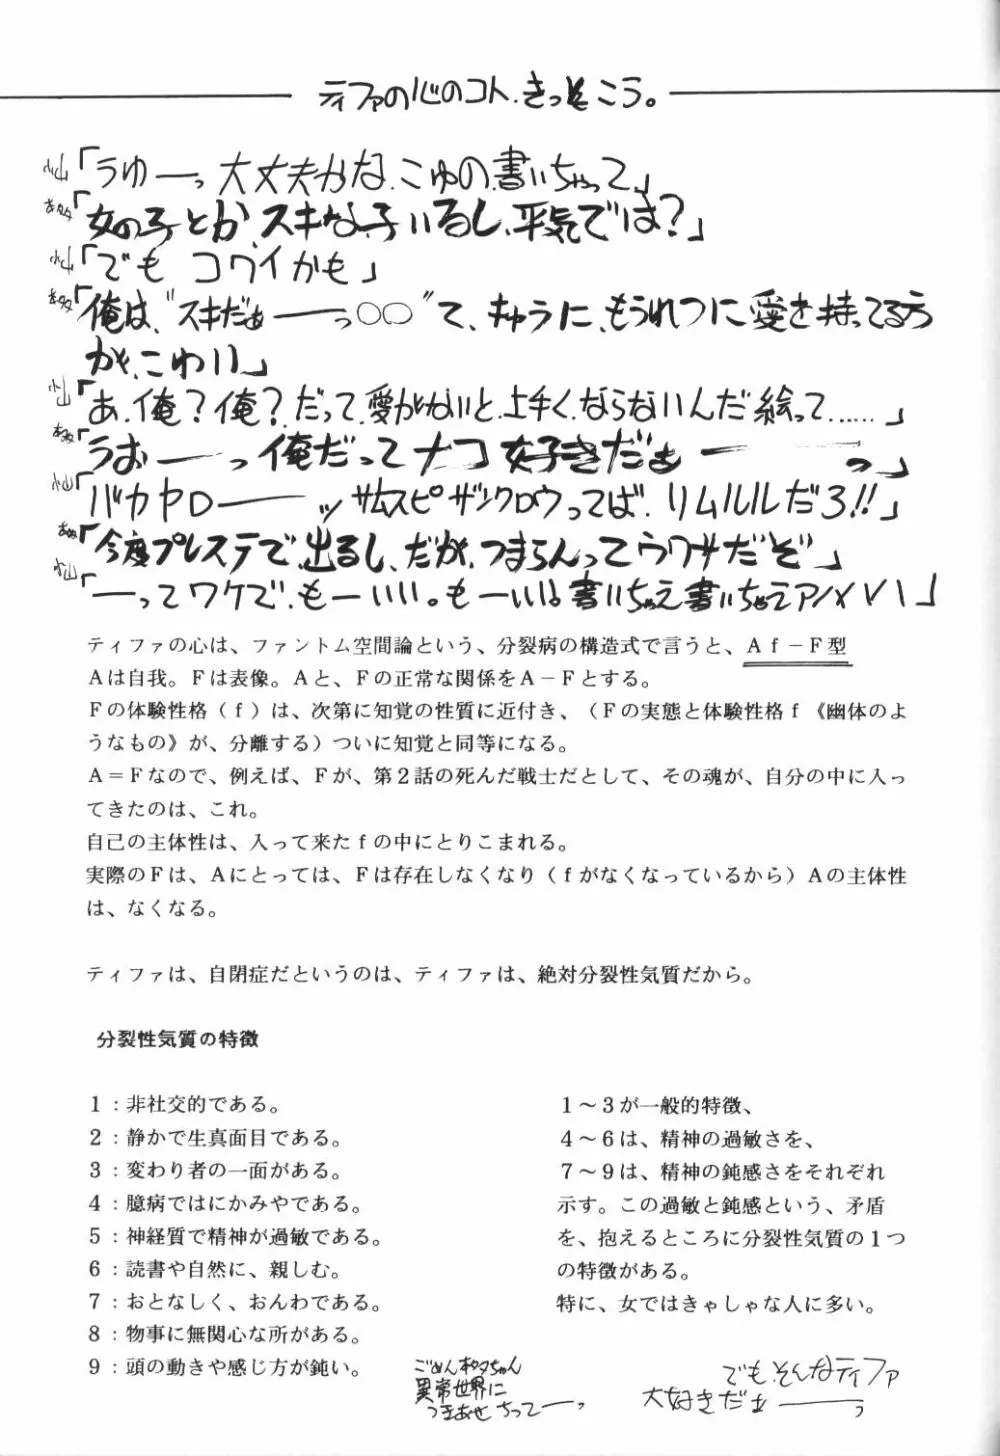 ティファの心のコト.きっとこう。
小山「うゆーっ大丈夫かな.こゆの.書いちゃって」
「女の子とか、スキな子いるし、平気では？」
小山「でも コワイかも」
「俺は、"スキだぁーーっ○○"て、きゅうに、もうれつに愛を持ってる方
が、こわい」
小山「あ.俺？俺？だって、愛がないと、上手く、ならないんだ絵って……」
「うおーーっ俺だってナコ好きだぁーーっ」
小山「バカヤローーッサムスピザンクロウってば.リムルルだろ!!」
「今度プレステで、出るし、だが、つまらんってウワサだぞ」
小山「ーってワケで、もーいい。もーいい。書いちゃえ書いちゃえ
ティファの心は、ファントム空間論という、分裂病の構造式で言うと、Ａｆ－Ｆ型
Ａは自我。Ｆは表像。Ａと、Ｆの正常な関係をＡ－Ｆとする。
Ｆの体験性格（ｆ）は、次第に知覚の性質に近付き、（Ｆの実態と体験性格ｆ《幽体のよ
うなもの》が、分離する）ついに知覚と同等になる。
Ａ＝Ｆなので、例えば、Ｆが、第２話の死んだ戦士だとして、その魂が、自分の中に入っ
てきたのは、これ。
自己の主体性は、入って来たｆの中にとりこまれる。
実際のＦは、Ａにとっては、Ｆは存在しなくなり（ｆがなくなっているから）Ａの主体性
は、なくなる。
ティファは、自閉症だというのは、ティファは、絶対分裂性気質だから。
分裂性気質の特徴
１：非社交的である。
２：静かで生真面目である。
３：変わり者の一面がある。
４：臆病ではにかみやである。
５：神経質で精神が過敏である。
６：読書や自然に、親しむ。
７：おとなしく、おんわである。
８：物事に無関心な所がある。
９：頭の動きや感じ方が鈍い。
１～３が一般的特徴、
４～６は、精神の過敏さを、
７～９は、精神の鈍感さをそれぞれ
示す。この過敏と鈍感という、矛盾
を、抱えるところに分裂性気質の１つ
の特徴がある。
特に、女ではきゃしゃな人に多い。
ごめん ちゃん
異常世界に
つきあせちってーっ
でも.そんなティファ
大好きだぁーーっ